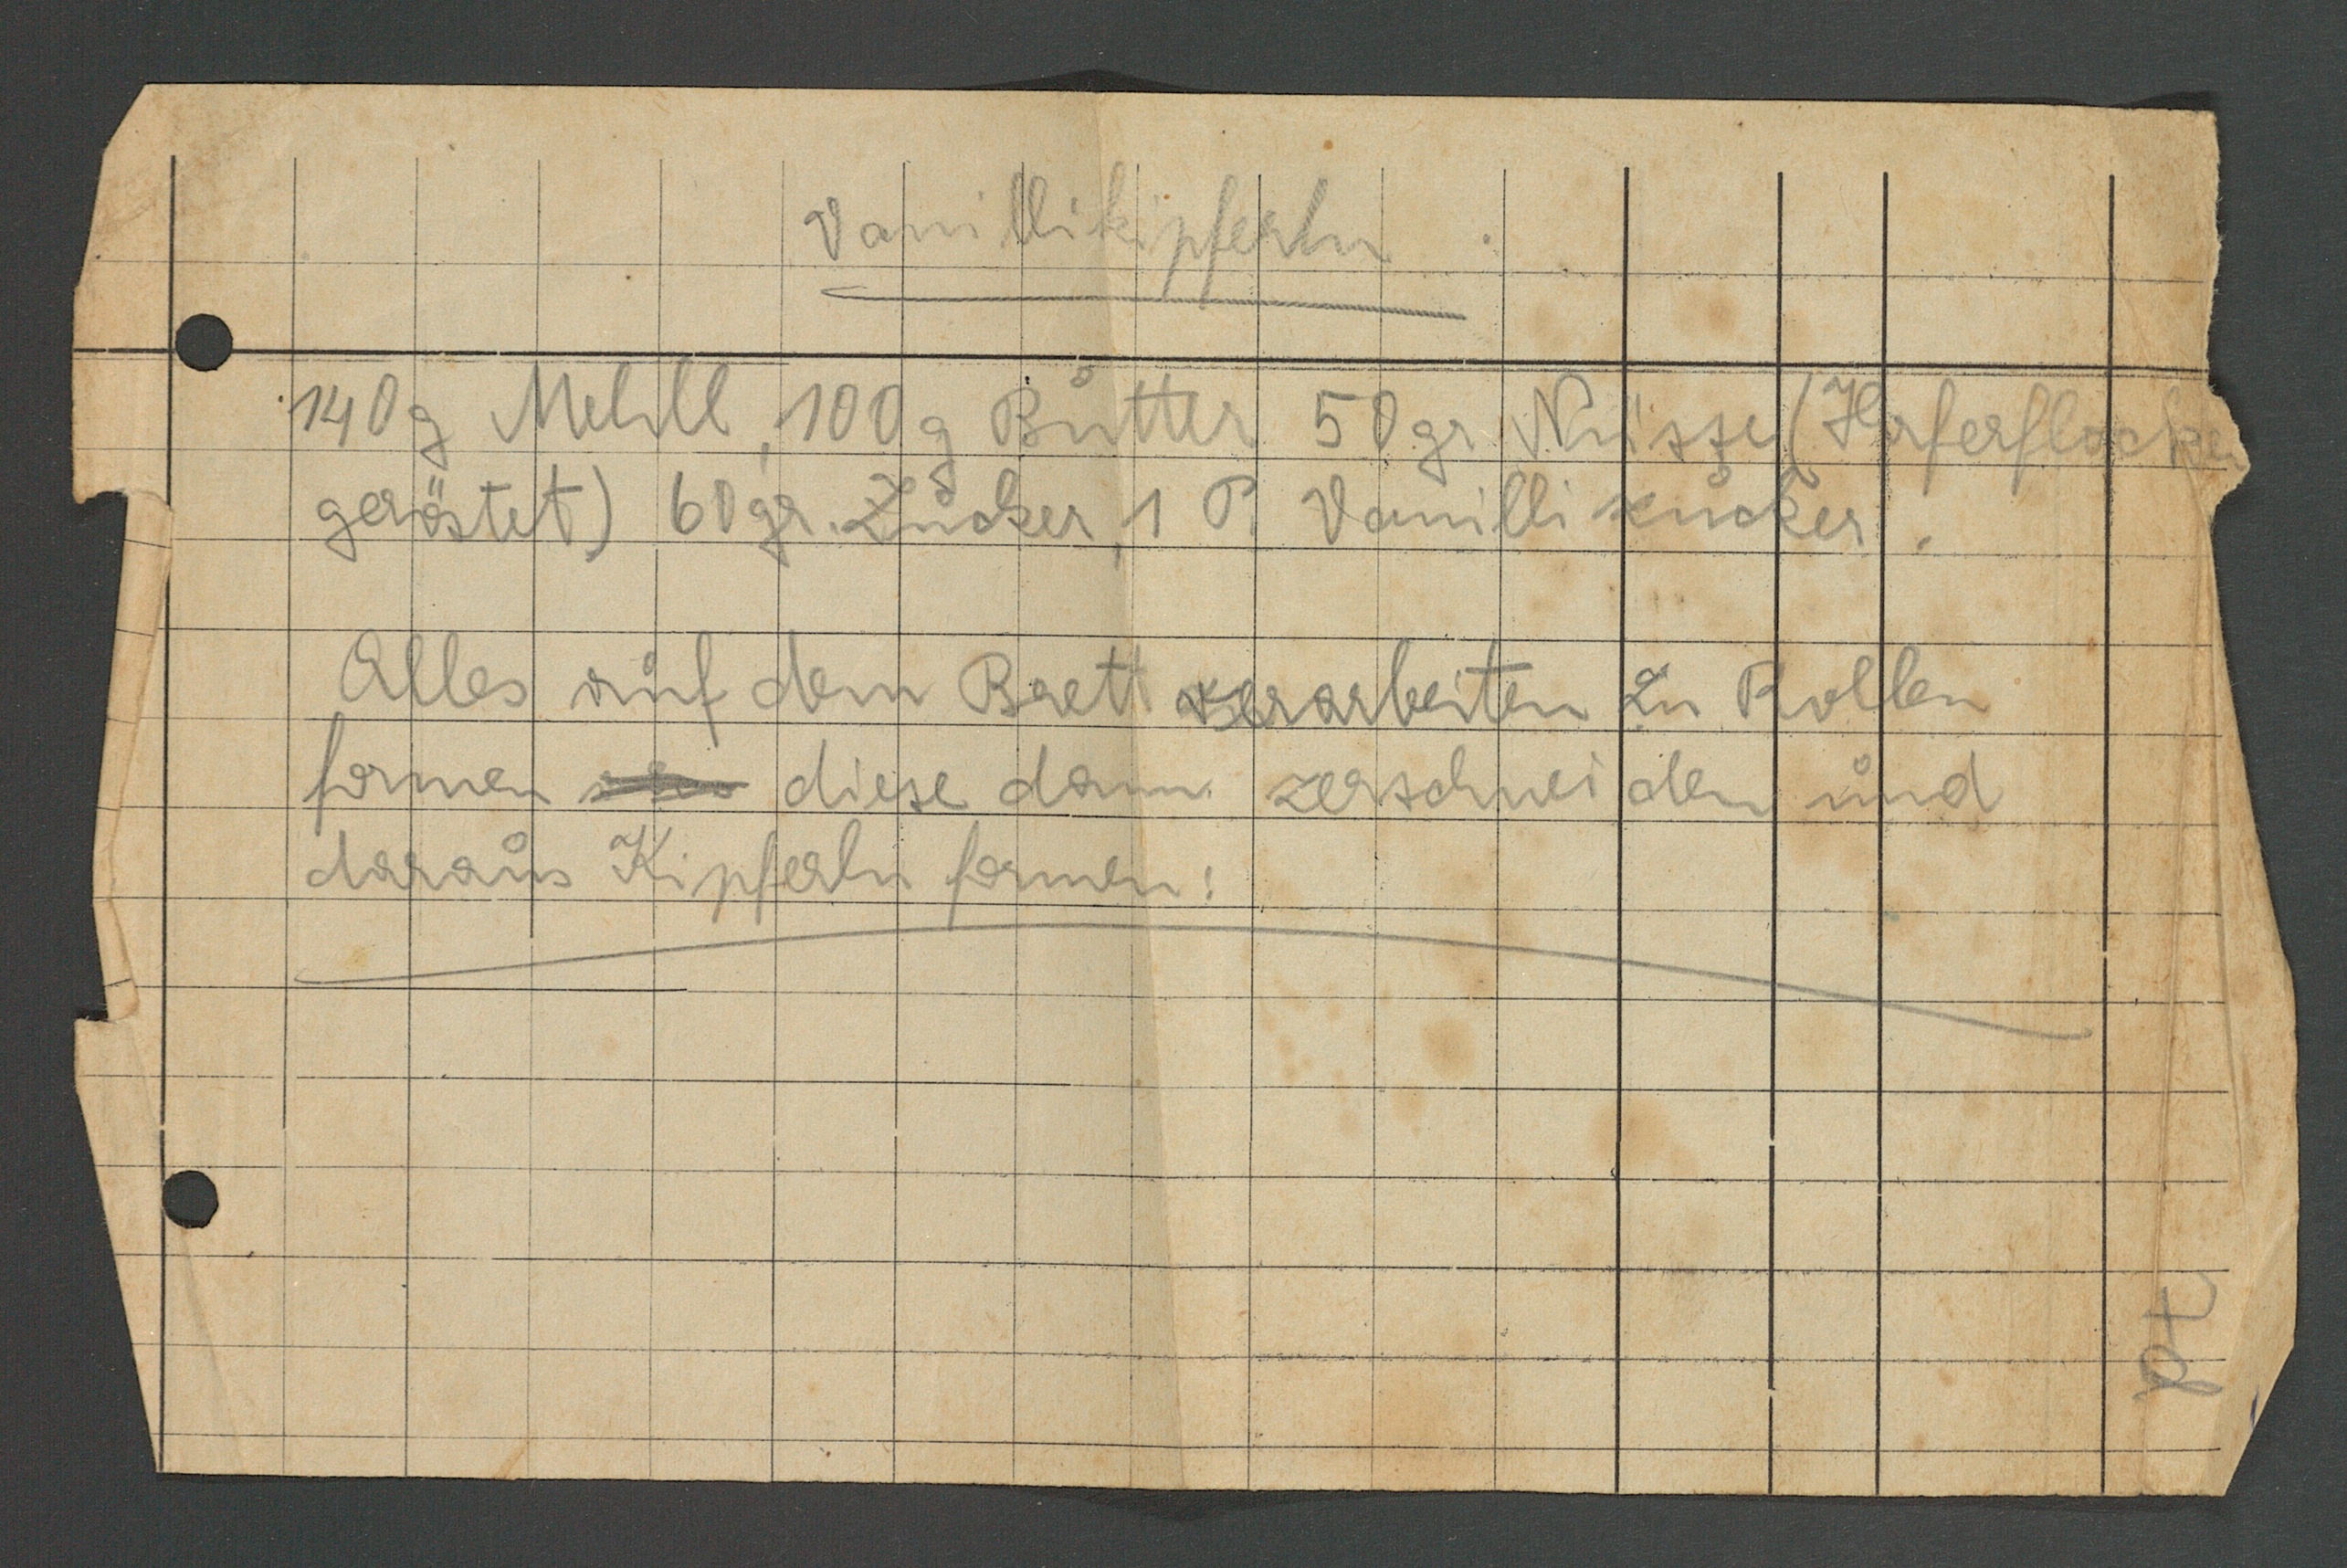 Vanillikipferln
140g Mehll, 100g Butter 50gr Nüsse (Haferflocken
geröstet) 60gr. Zucker, 1 P. Vanillizucker.
Alles auf dem Brett verarbeiten zu Rollen
formen diese dann zerschneiden und
daraus Kipferln formen: